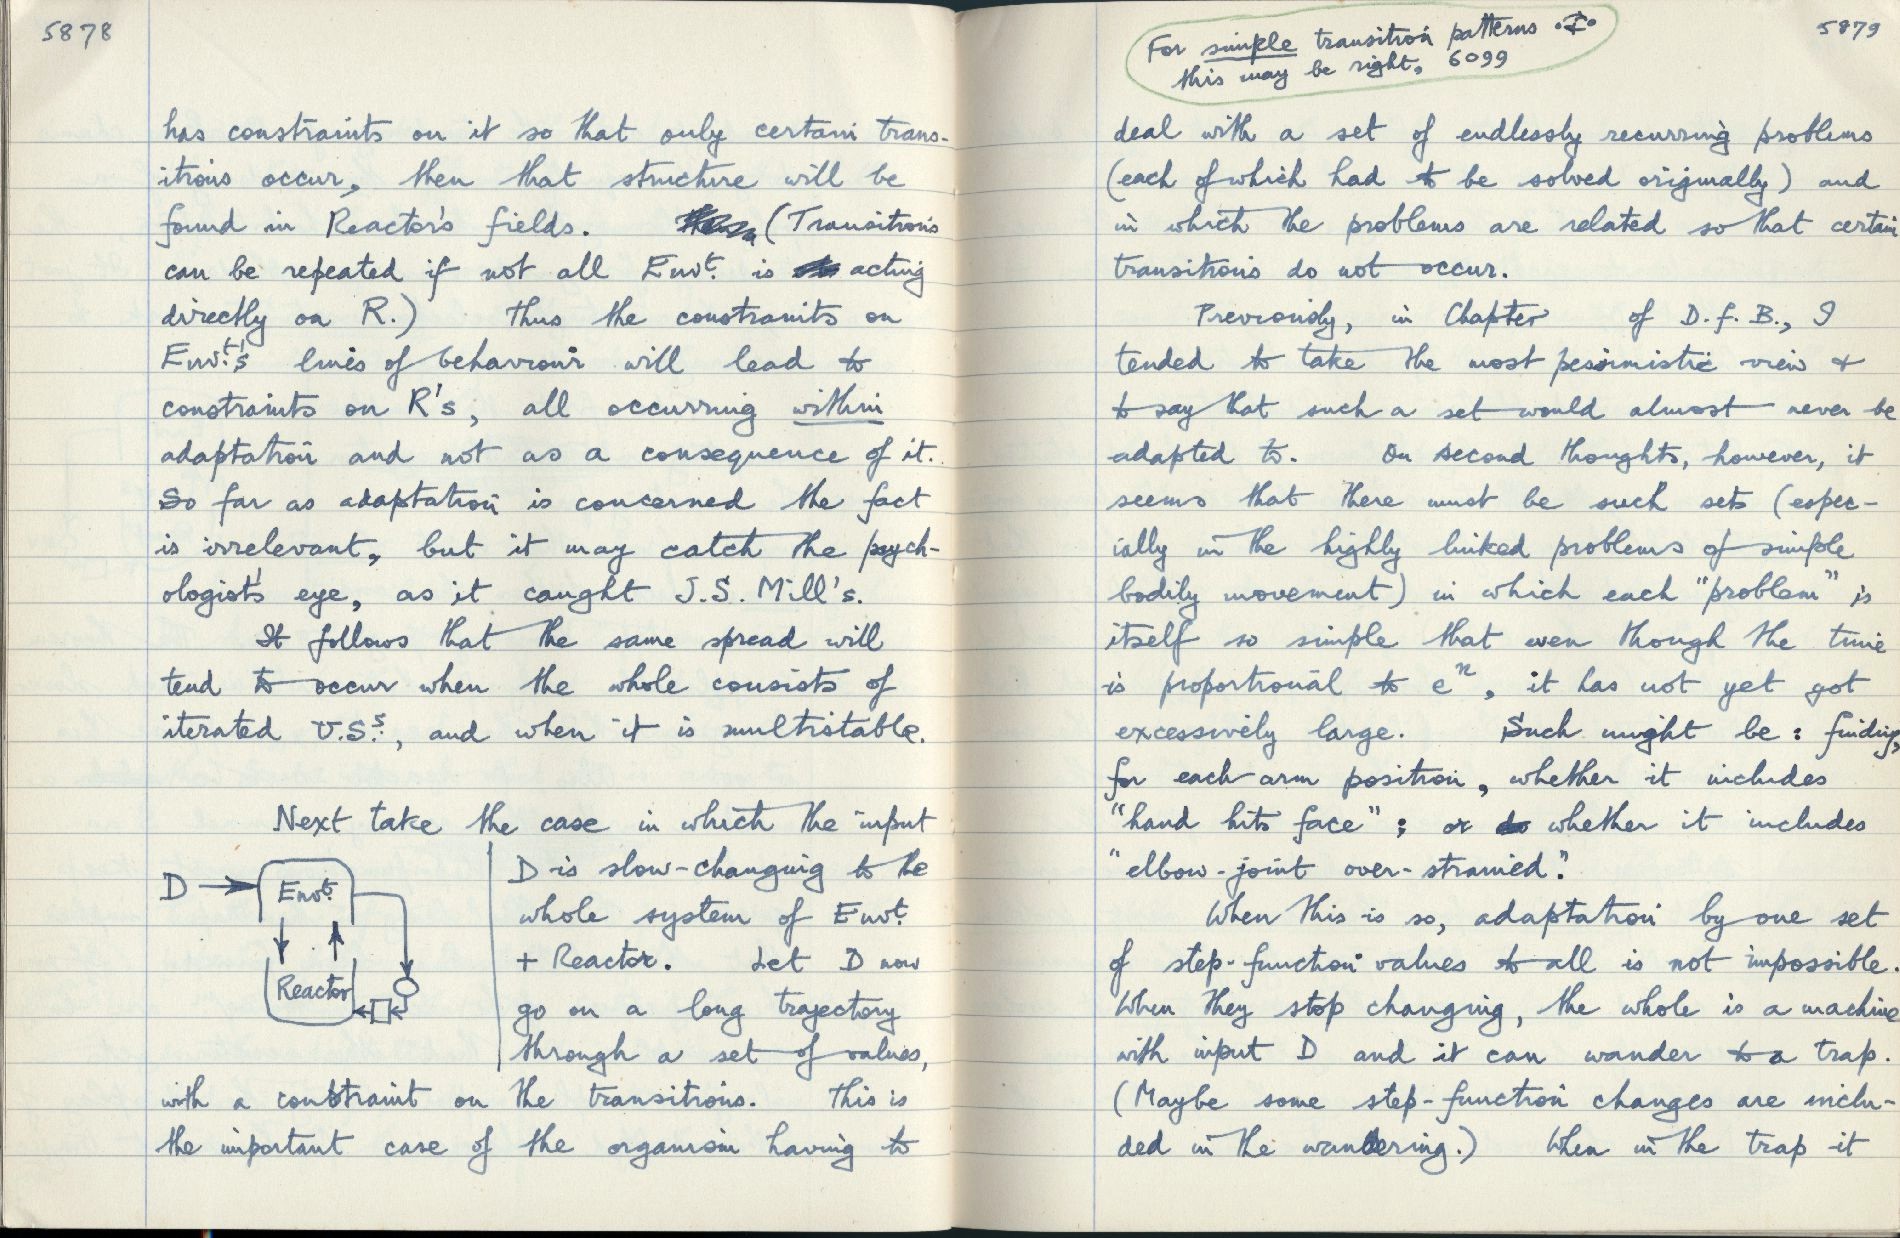 5878
has constraints on it so that only certain trans-
itions occur, then that structure will be
found in Reactor's fields. (Transitions
can be repeated if not all Envt. is acting
directly on R.) Thus the constraints on
Envt.'s lines of behaviour will lead to
constraints on R's, all occurring within
adaptation and not as a consequence of it.
So far as adaptation is concerned the fact
is irrelevant, but it may catch the psych-
ologist's eye, as it caught J.S. Mill's.
It follows that the same spread will
tend to occur when the whole consists of
iterated U.S.s, and when it is multistable.
Next take the case in which the input
D
Envt.
Reactor
D is slow-changing to the
whole system of Envt.
+ Reactor. Let D now
go on a long trajectory
through a set of values,
with a constraint on the transitions. This is
the important case of the organism having to
5879
For simple transition patterns
this may be right, 6099
deal with a set of endlessly recurring problems
(each of which had to be solved originally) and
in which the problems are related so that certain
transitions do not occur.
Previously, in Chapter of D.f.B., I
tended to take the most pessimistic view &
to say that such a set would almost never be
adapted to. On second thoughts, however, it
seems that there must be such sets (espec-
ially in the highly linked problems of simple
bodily movement) in which each "problem" is
itself so simple that even though the time
is proportional to eⁿ, it has not yet got
excessively large. Such might be: finding,
for each arm position, whether it includes
"hand hits face"; or whether it includes
"elbow-joint over-strained".
When this is so, adaptation by one set
of step-function values to all is not impossible.
When they stop changing, the whole is a machine
with input D and it can wander to a trap.
(Maybe some step-function changes are inclu-
ded in the wandering.) When in the trap it